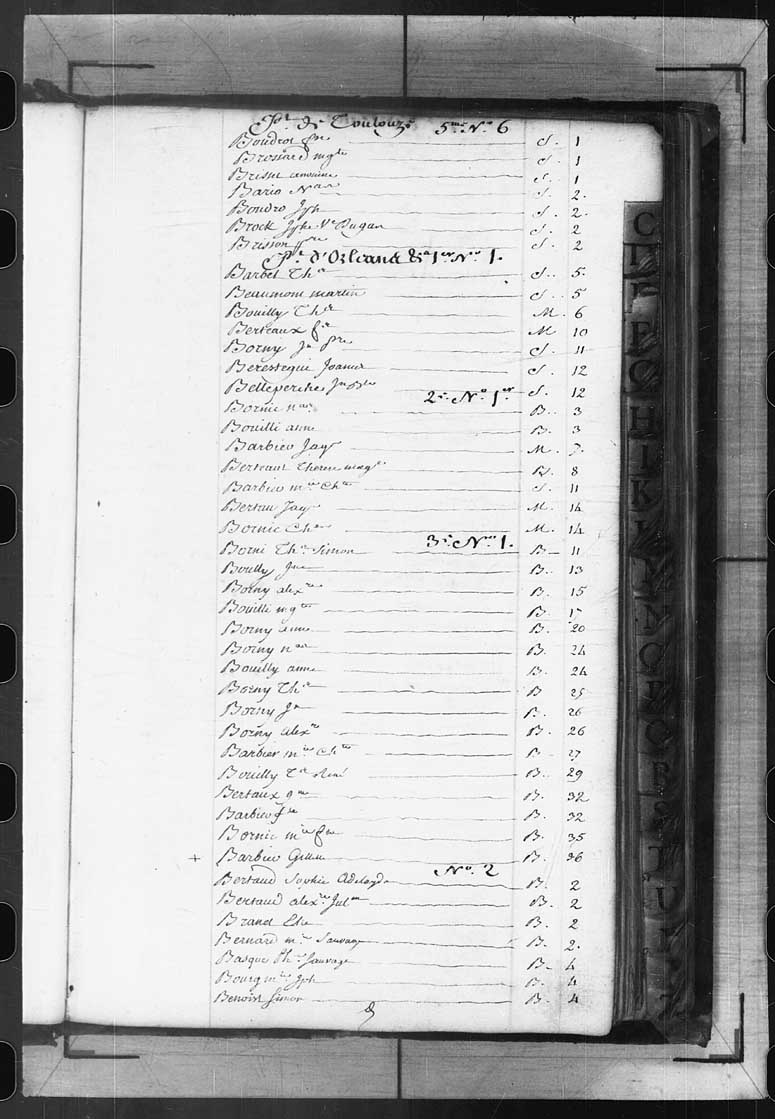 Pt. de Toulouze 5me No 6
Boudrot pre S. 1
Brossard mgte S. 1
Brisset S. 1
Bario Nas S. 2.
Boudro Jph S. 2.
Brock Jphe Ve Dugas S. 2
Brisson pre S. 2
Pt. d'Orleans 1er No 1.
Barbet Ths S. 5.
Beaumont martin S. 5
Bouilly Ths M. 6
Berteaux M. 10
Borny Jn pre S. 11
Beresseque Joannis S. 12
Belleperche Jn Bte S. 12
2e No 1er
Bornic nas B. 3
Bouilli anne B. 3
Barbieu Jacq M. 7.
Berteaut Therese B. 8
Barbieu mie Chte S. 11
Bertau Jacq M. 14
Bornic Chs M. 14
3e No 1.
Borni Ths Simon B. 11
Bouilly Jne B. 13
Borny alexre B. 15
Bouilli mgte B. 17
Borny anne B. 20
Borny nas B. 24
Bouilly anne B. 24
Borny Ths B 25
Borny Jn B. 26
Borny alexre B. 26
Barbier mie Chte B. 27
Bouilly B. 29
Bertaux gme B. 32
Barbieu B. 32
Bornic mie B. 35
+ Barbieu Gillette B. 36
No. 2
Bertaud Sophie Adelayde B. 2
Bertaud alexre Julen B. 2
Brand Elie B. 2
Bernard me Sauvage B. 2.
Basque Ph. Sauvage B. 4
Bourg mie Jph B. 4
Benoist Simon B. 4